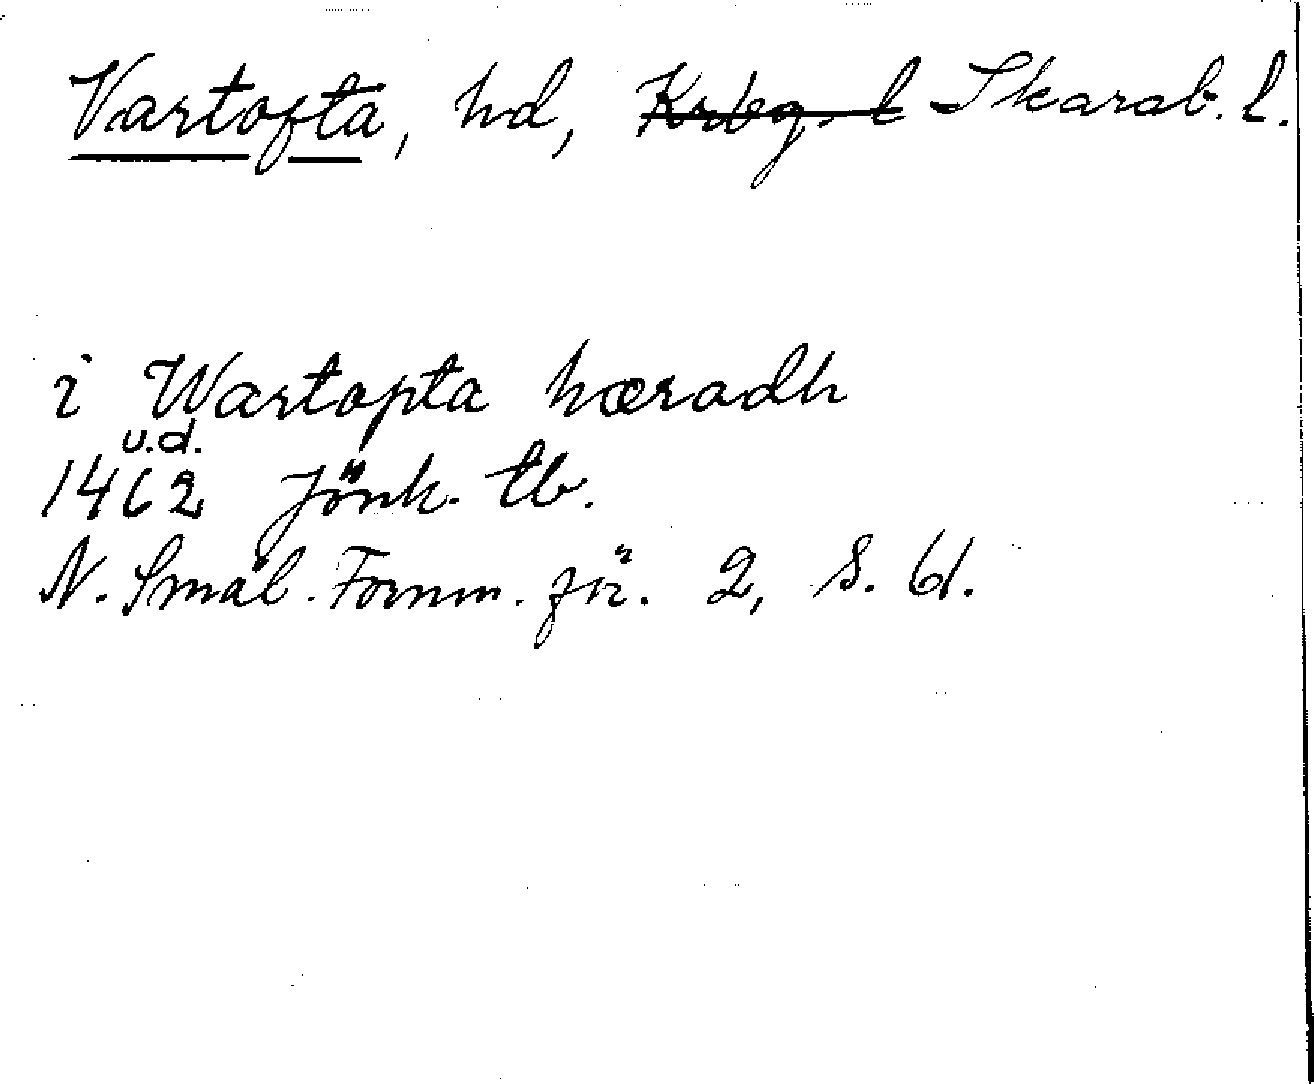 Vartofta, hd, Krbg. l Skarab. l.
i Wartopta hæradh
u.d.
1462 Jönk. tb.
N. Smål. Fornm. för. 2, s. 61.